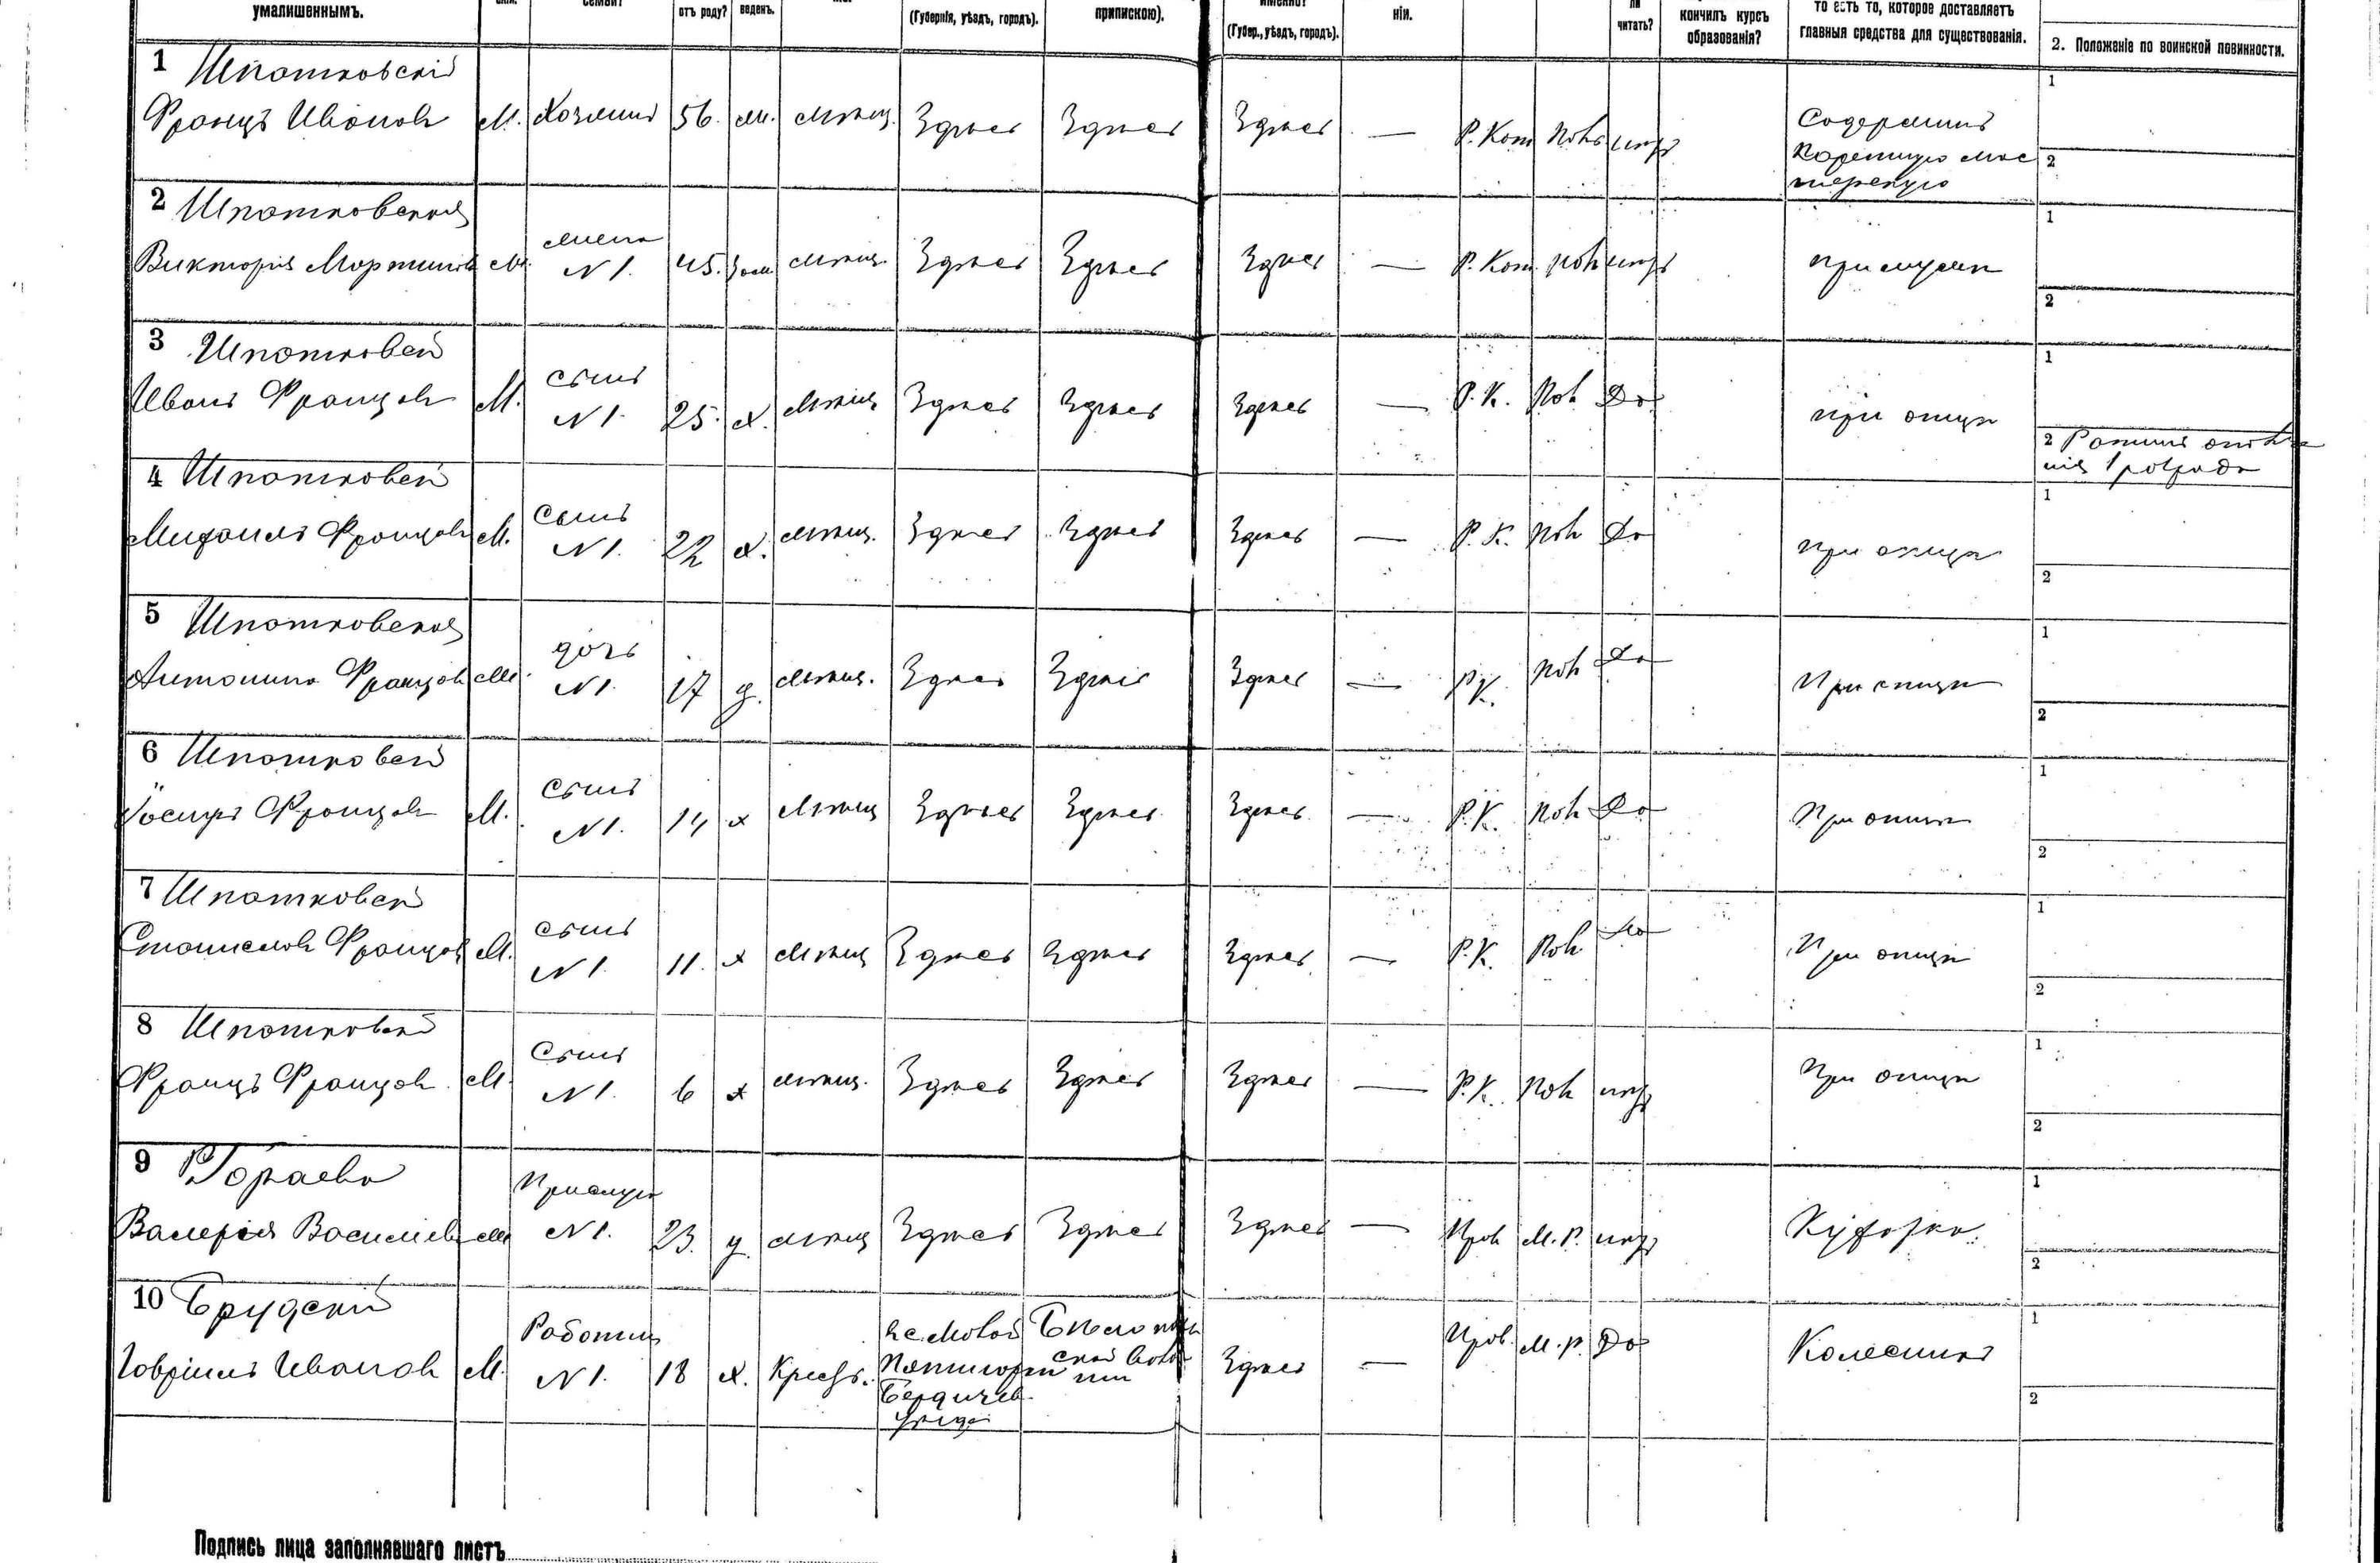 умалишеннымъ.
отъ роду?
веденъ.
(Губернія, уѣздъ, городъ).
припискою).
(Губер., уѣздъ, городъ).
ніи.
ли читать?
кончилъ курсъ образованія?
то есть то, которое доставляетъ главныя средства для существованія.
2. Положеніе по воинской повинности.
1 Шпотковскій
Францъ Иванов М. Хозяинъ 56. мѣщ. Здѣсь Здѣсь Здѣсь — Р. Кат Пол нѣтъ Содержитъ
1
2
2 Шпотковская
Виктория Мартинов жена N 1. 45. Зам мѣщ. Здѣсь Здѣсь Здѣсь — Р. Кат. Пол нѣтъ при мужѣ
1
2
3 Шпотковск
Иванъ Францов М. сынъ N 1. 25. х. мѣщ Здѣсь Здѣсь Здѣсь — Р. К. Пол Да при отцѣ
1
2 Ратникъ ополче
нія 1 разряда
4 Шпотковск
Михаилъ Францов М. сынъ N 1. 22 х. мѣщ. Здѣсь Здѣсь Здѣсь — Р. К. Пол Да при отцѣ
1
2
5 Шпотковская
Антонина Францов дочь N 1. 17 д. мѣщ. Здѣсь Здѣсь Здѣсь — Р. К. Пол Да При отцѣ
1
2
6 Шпотковск
Іосифъ Францов М. сынъ N 1. 14 х мѣщ Здѣсь Здѣсь Здѣсь — Р. К. Пол Да При отцѣ
1
2
7 Шпотковск
Станислав Францов М. сынъ N 1. 11. х мѣщ Здѣсь Здѣсь Здѣсь — Р. К. Пол Да При отцѣ
1
2
8 Шпотковск
Францъ Францов М. Сынъ N 1. 6 х мѣщ. Здѣсь Здѣсь Здѣсь — Р. К. Пол нѣтъ При отцѣ
1
2
9
Валерія Василіев Прислуга N 1. 23. д. мѣщ Здѣсь Здѣсь Здѣсь — Прав М. Р. нѣтъ Кухарка.
1
2
10 Брудскій
Гавріилъ Иванов М. Работник N 1. 18 х. Крест. Бердичев. уѣзда Здѣсь — Прав. М. Р. Да Колесникъ
1
2
Подпись лица заполнявшаго листъ